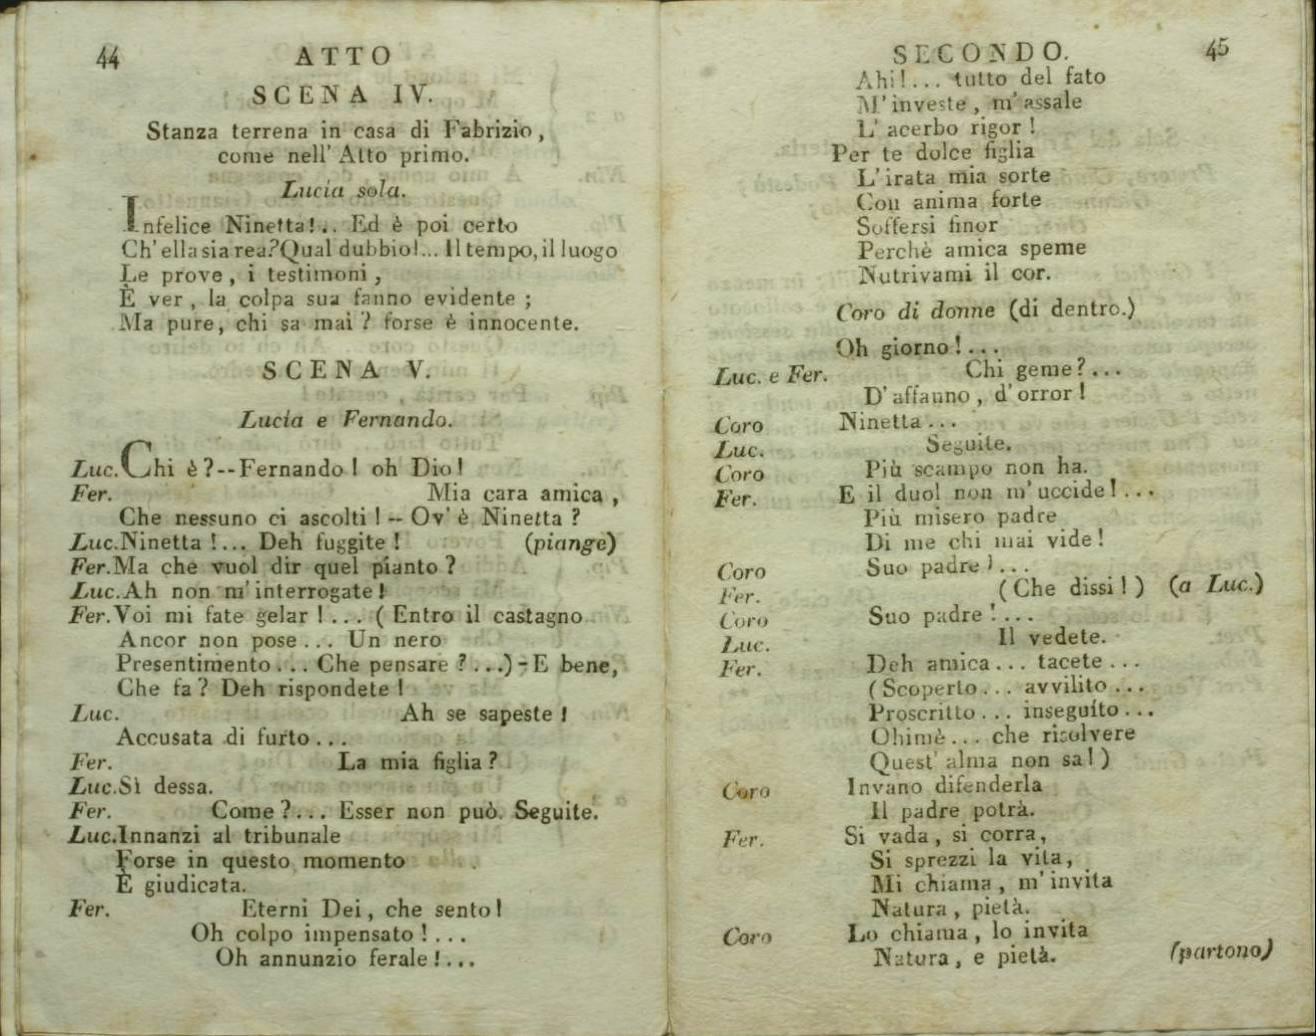 44
ATTO
SCENA IV.
Stanza terrena in casa di Fabrizio,
come nell' Atto primo.
Lucia sola.
Infelice Ninetta!.. Ed è poi certo
Ch' ella sia rea? Qual dubbio!... Il tempo, il luogo
Le prove, i testimoni,
È ver, la colpa sua fanno evidente;
Ma pure, chi sa mai? forse è innocente.
SCENA V.
Lucia e Fernando.
Luc. Chi è?--Fernando! oh Dio!
Fer. Mia cara amica,
Che nessuno ci ascolti! -- Ov' è Ninetta?
Luc. Ninetta!... Deh fuggite! (piange)
Fer. Ma che vuol dir quel pianto?
Luc. Ah non m' interrogate!
Fer. Voi mi fate gelar!... (Entro il castagno
Ancor non pose... Un nero
Presentimento... Che pensare?...)-E bene,
Che fa? Deh rispondete!
Luc. Ah se sapeste!
Accusata di furto...
Fer. La mia figlia?
Luc. Sì dessa.
Fer. Come?... Esser non può. Seguite.
Luc. Innanzi al tribunale
Forse in questo momento
È giudicata.
Fer. Eterni Dei, che sento!
Oh colpo impensato!...
Oh annunzio ferale!...
SECONDO.
45
Ahi!... tutto del fato
M' investe, m' assale
L' acerbo rigor!
Per te dolce figlia
L' irata mia sorte
Con anima forte
Soffersi finor
Perchè amica speme
Nutrivami il cor.
Coro di donne (di dentro.)
Oh giorno!...
Luc. e Fer. Chi geme?...
D' affanno, d' orror!
Coro Ninetta...
Luc. Seguite.
Coro Più scampo non ha.
Fer. E il duol non m' uccide!...
Più misero padre
Di me chi mai vide!
Coro Suo padre!...
Fer. (Che dissi!) (a Luc.)
Coro Suo padre!...
Luc. Il vedete.
Fer. Deh amica... tacete...
(Scoperto... avvilito...
Proscritto... inseguito...
Ohimè... che risolvere
Quest' alma non sa!)
Coro Invano difenderla
Il padre potrà.
Fer. Si vada, si corra,
Si sprezzi la vita,
Mi chiama, m' invita
Natura, pietà.
Coro Lo chiama, lo invita
Natura, e pietà. (partono)